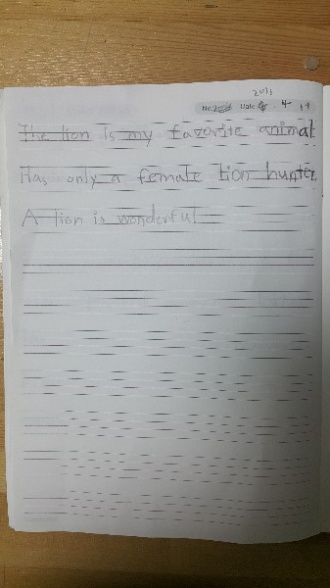 2013
4 19
The lion is my favorite animal
Has only a female lion hunter
A lion is wonderful